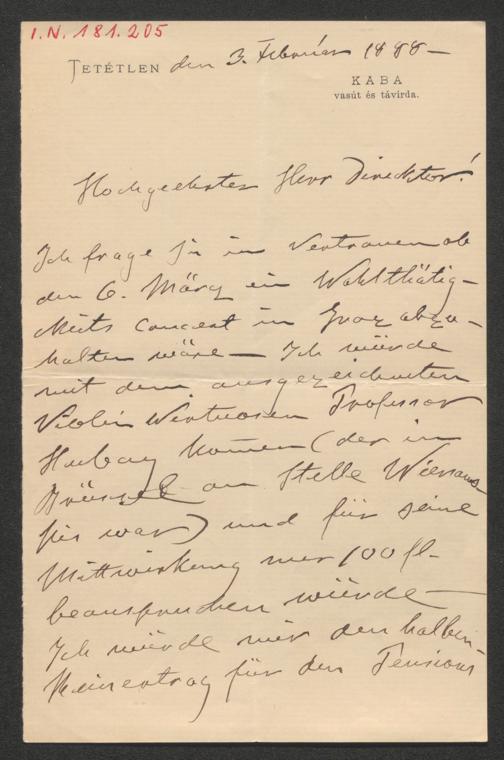 I.N. 181.205
TETÉTLEN den 3. Februar 1888 —
KABA
vasút és távirda.
Hochgeehrter Herr Direktor!
Ich frage Sie im Vertrauen ob
den 6. März ein Wohlthätig-
keits Concert in Graz abzu-
halten wäre — Ich würde
mit dem ausgezeichneten
Violin Virtuosen Professor
Hubay kommen (der in
Brüssel an Stelle Wieniaws
kis war) und für seine
Mittwirkung nur 100 fl.
beanspruchen würde —
Ich würde mir den halben
Reinertrag für den Pensions